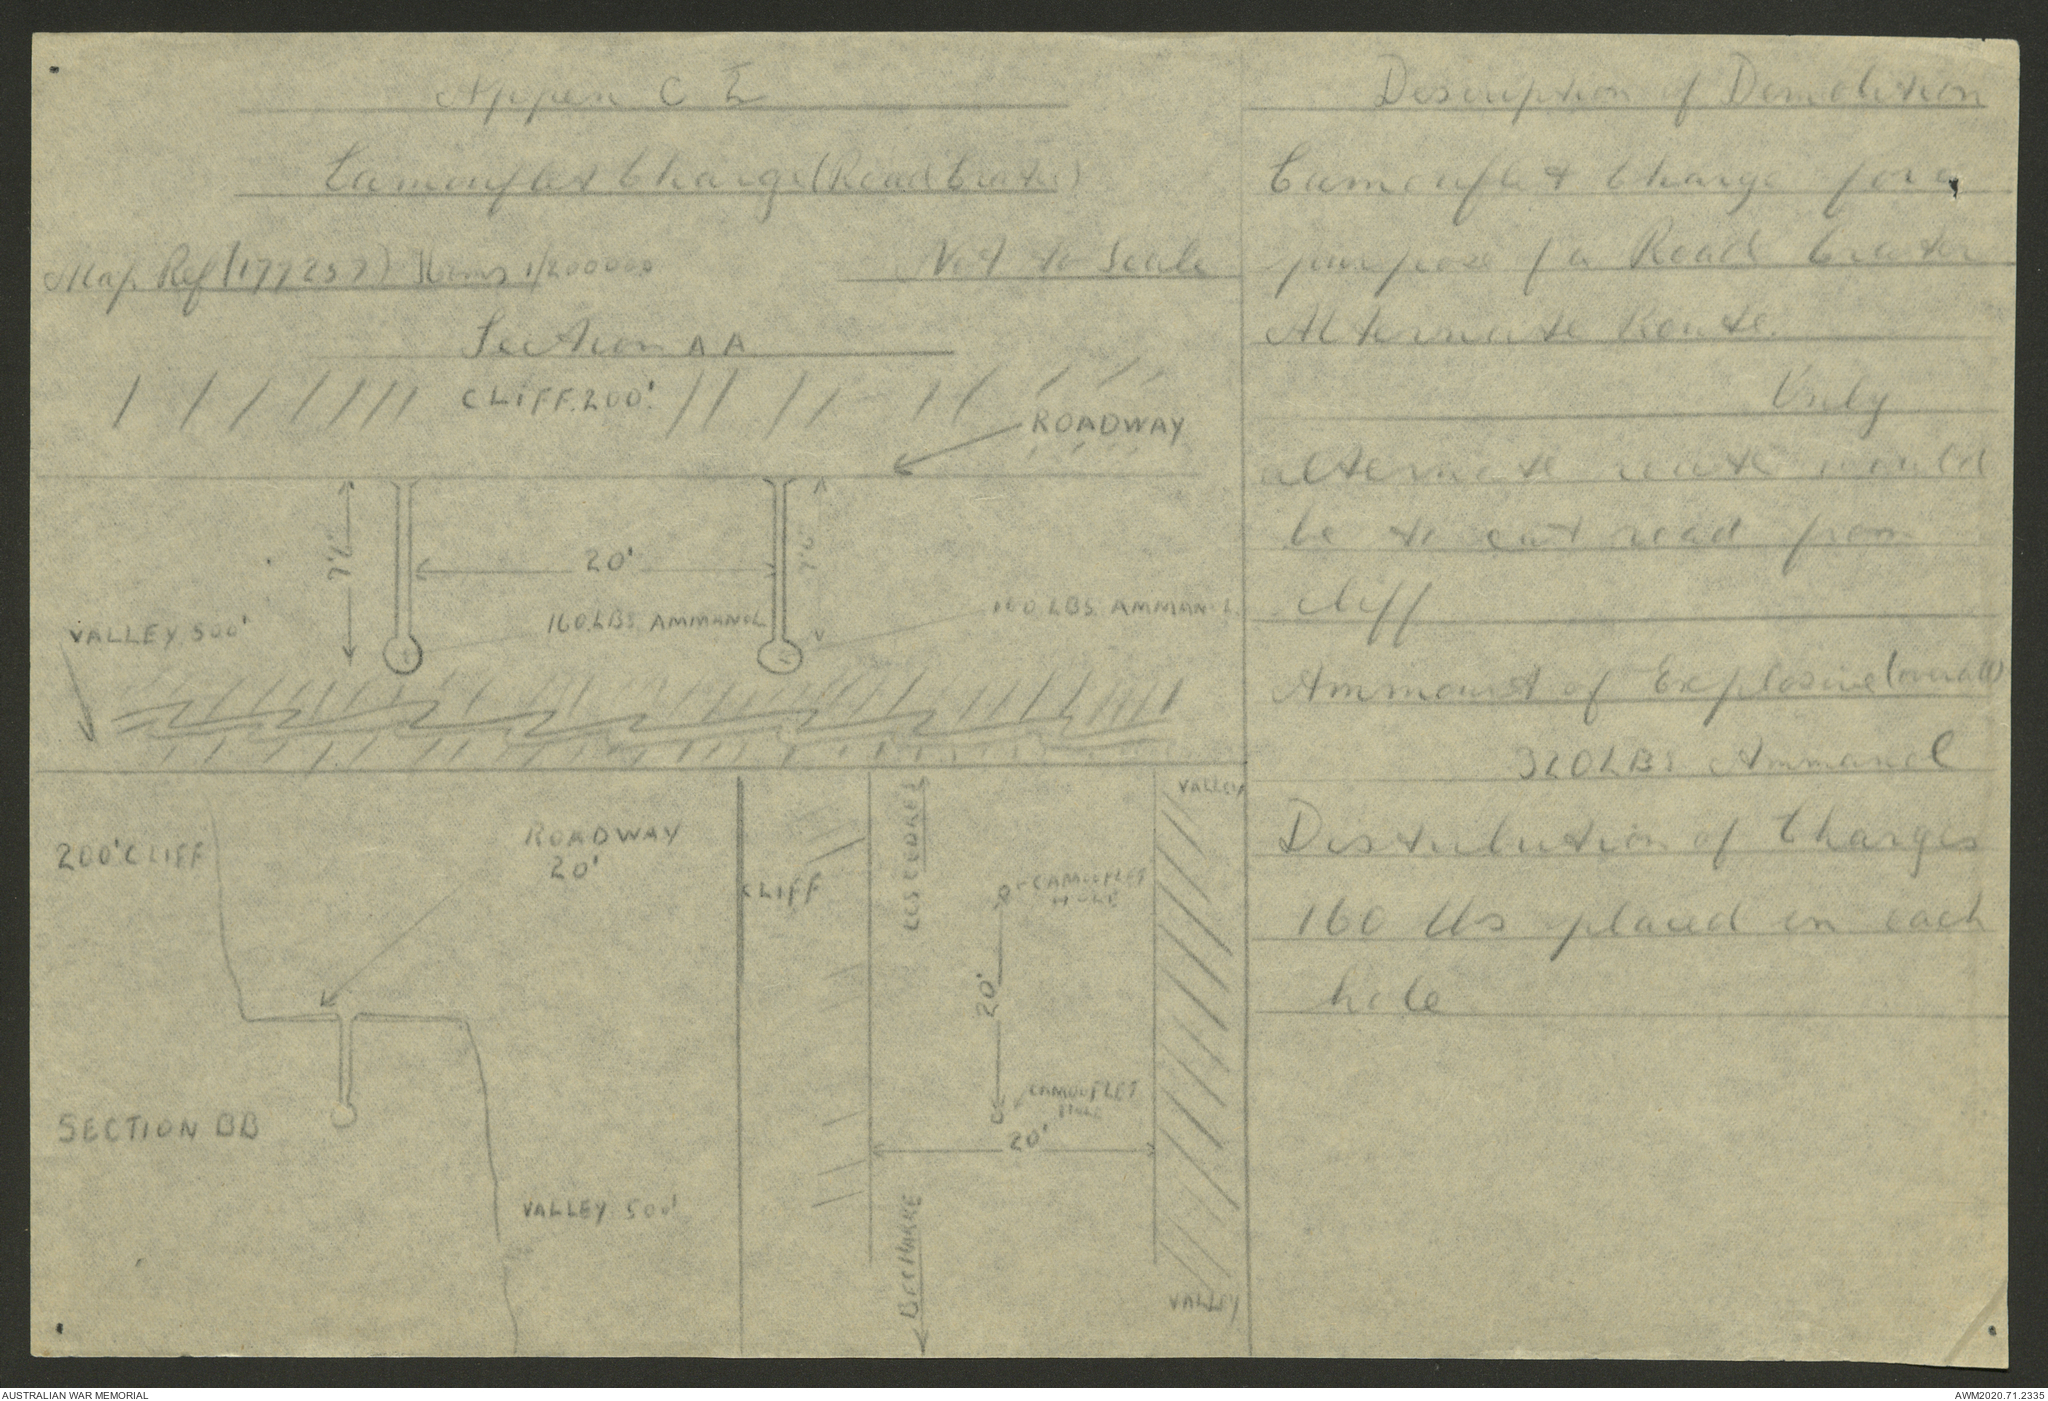 Appen C
Camouflet Charge (Road Crater)
Map Ref (177257) Homs 1/200000
Not to Scale
Section AA
CLIFF. 200'.
ROADWAY
20'
160. LBS. AMMANOL
160. LBS. AMMANOL
VALLEY. 500'
200' CLIFF
ROADWAY
20'
SECTION BB
VALLEY. 500'
VALLEY
CLIFF
LES CEDRES
CAMOUFLET
HOLE
20'
CAMOUFLET
HOLE
20'
BECHARRE
VALLEY
Description of Demolition
Camouflet Charge for a
purpose f a Road Crater
Alternate Route.
Only
alternate route would
be to cut road from
cliff
Ammount of Explosive (overall)
320 LBS Ammanol
Distribution of Charges
160 lbs placed in each
hole
AUSTRALIAN WAR MEMORIAL
AWM2020.71.2335